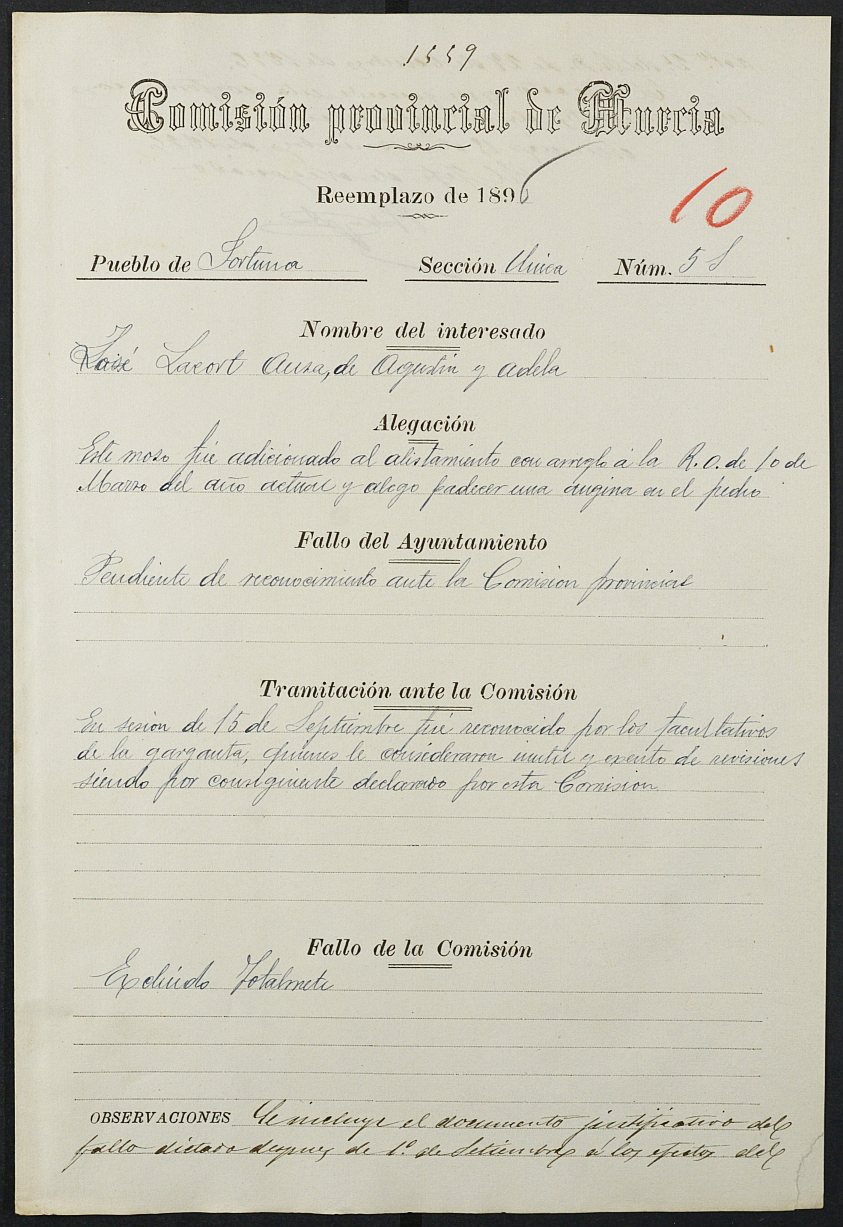 1559
Comisión provincial de Murcia
Reemplazo de 1896
10
Pueblo de Fortuna Sección Unica Núm. 5 S
Nombre del interesado
José Lacort Ausa, de Agustin y Adela
Alegación
Este mozo fué adicionado al alistamiento con arreglo á la R.O. de 10 de
Marzo del año actual y alegó padecer una angina en el pecho
Fallo del Ayuntamiento
Pendiente de reconocimiento ante la Comision provincial
Tramitación ante la Comisión
En sesion de 15 de Septiembre fué reconocido por los facultativos
de la garganta, quienes le consideraron inutil y exento de revisiones
siendo por consiguiente declarado por esta Comision
Fallo de la Comisión
Excluido Totalmete
OBSERVACIONES Se incluye el documento justificativo del
fallo dictado despues de 1.º de Setiembre á los efectos del